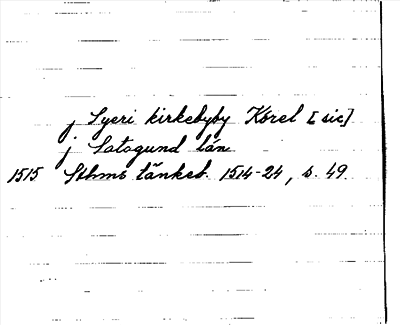 j Syeri kirkebyby Körel [sic]
j Satagund län
1515 Sthms tänkeb. 1514-24, s. 49